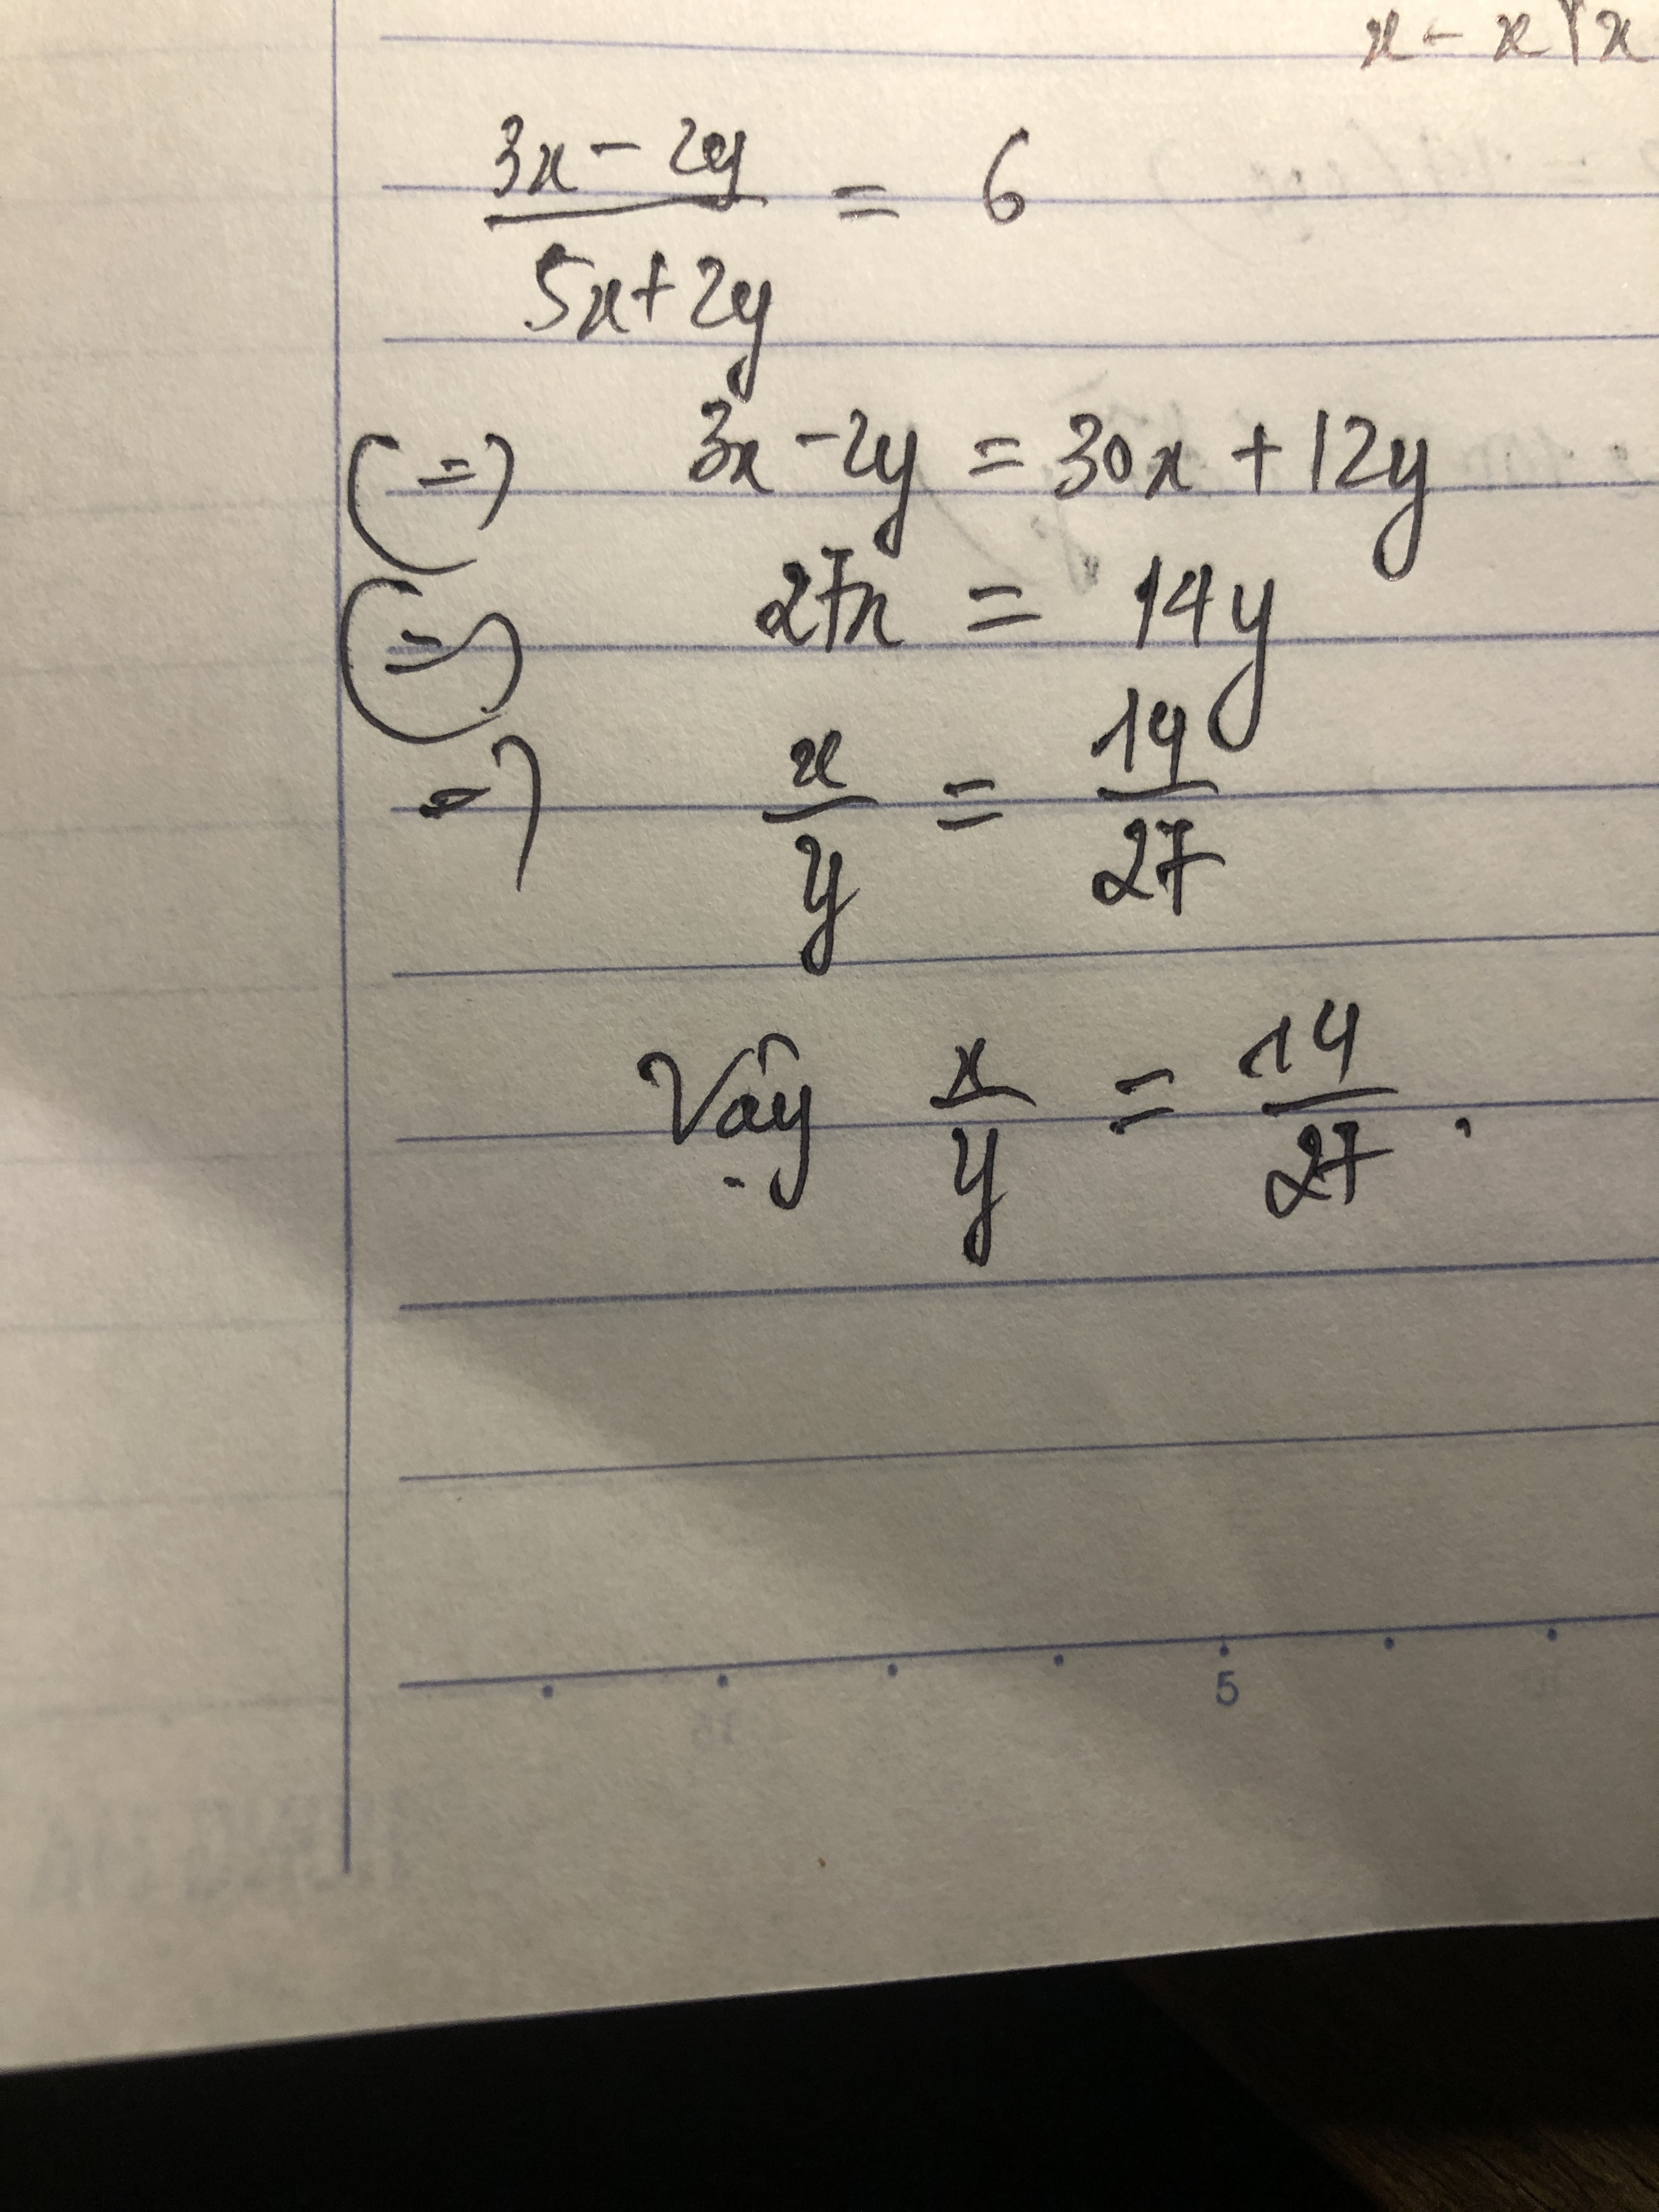 x - x
3x - 2y / 5x + 2y = 6
(=) 3x - 2y = 30x + 12y
(=) 27x = 14y
=) x/y = 14/27
Vậy x/y = 14/27.
5